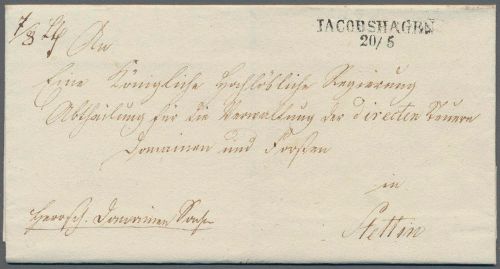 JACOBSHAGEN
20/5
7/8
An
Eine Königliche Hochlöbliche Regierung
Abtheilung für die Verwaltung der directen Steuern
Domainen und Forsten
in
Stettin
Herrsch. Domainen Sache